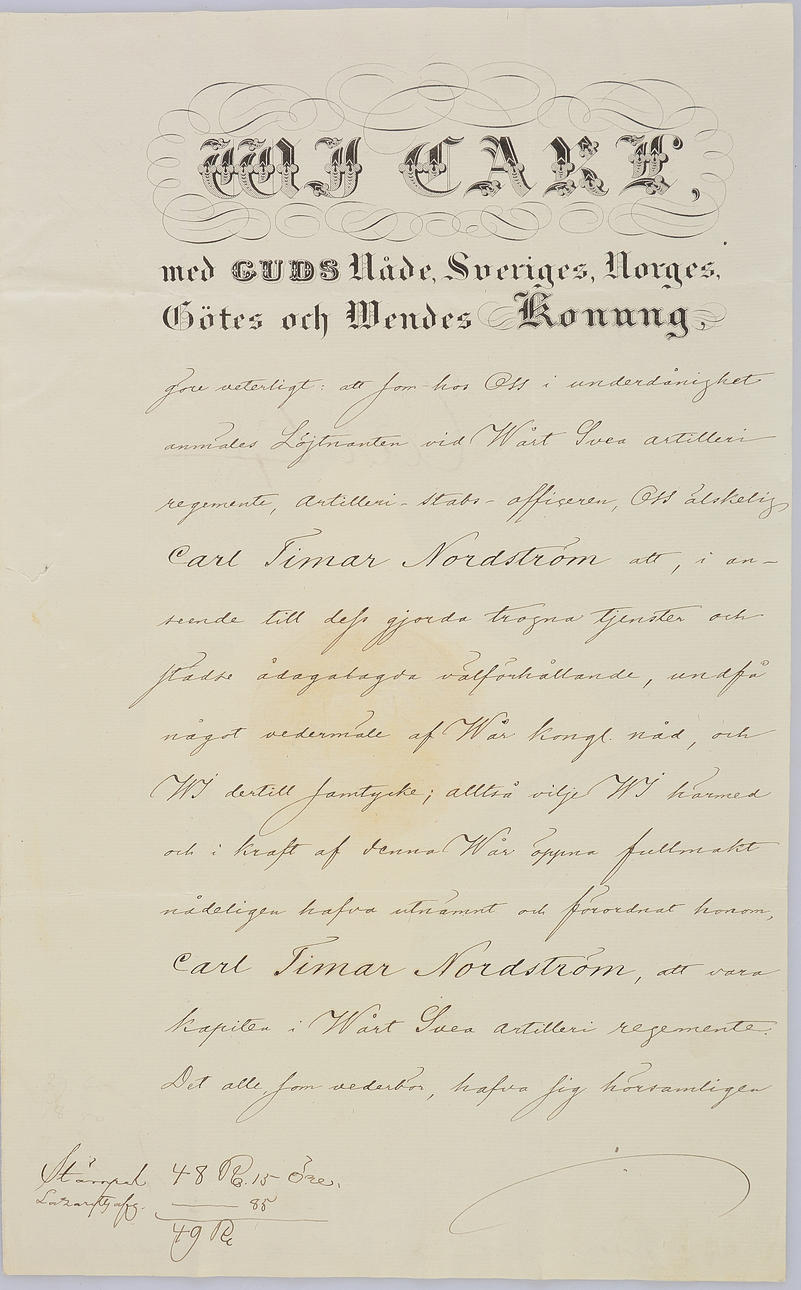 WJ CARL,
med GUDS Nåde, Sveriges, Norges,
Götes och Wendes Konung,
göre veterligt: att som hos Oss i underdånighet
anmäles Löjtnanten vid Wårt Svea artilleri
regemente, Artilleri-stabs-officeren, Oss älskelig
Carl Timar Nordström att, i an-
seende till dess gjorda trogna tjenster och
städse ådagalagda välförhållande, undfå
något vedermäle af Wår kongl. nåd, och
WJ dertill samtycke; alltså vilje WJ härmed
och i kraft af denna Wår öppna fullmakt
nådeligen hafva utnämnt och förordnat honom,
Carl Timar Nordström, att vara
kapiten i Wårt Svea artilleri regemente.
Det alle som vederbör, hafva sig hörsamligen
Stämpel 48 R. 15 öre.
Lazarettsafg. — 85
49 R